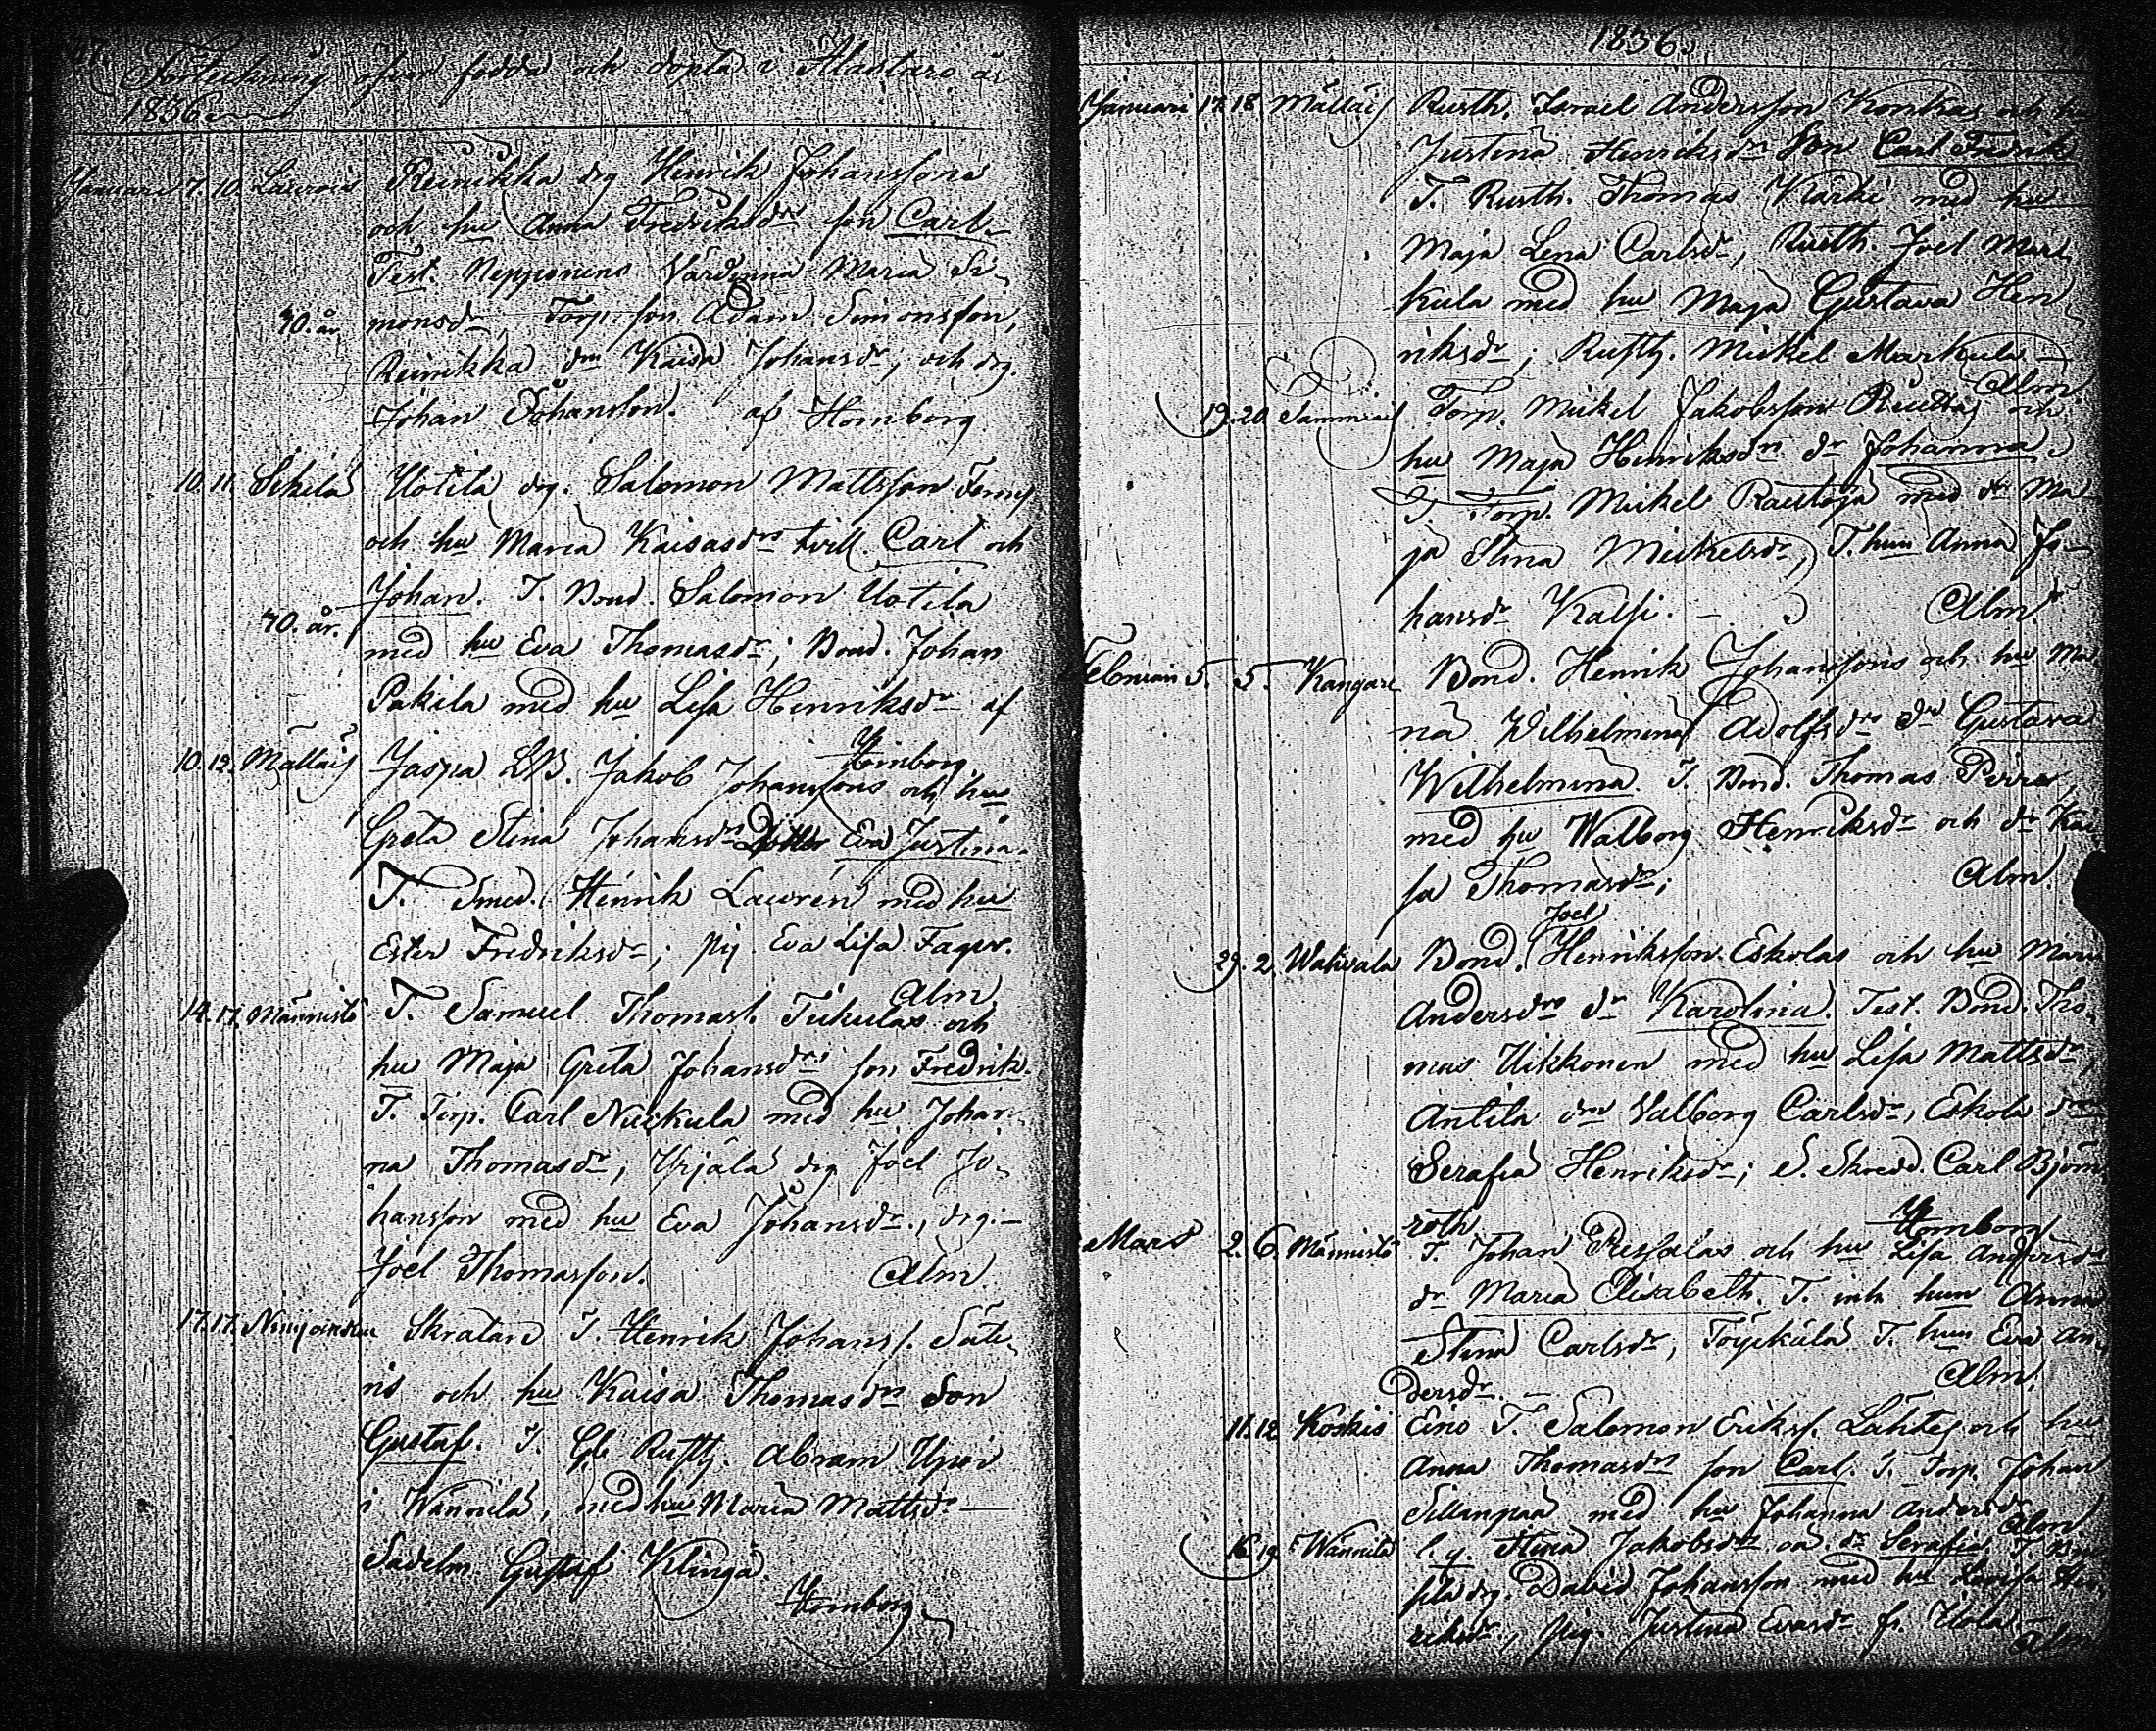 Förteckning öfver födda och döpta i Alastaro år
1836
Januari 7. 10. Laurois Reinikka drg Henrik Johanssons
och hu Anna Fredriksdrs son Carl.
Test. Nepponens Värdinna Maria Si-
40. år monsdr, Torp. son Adam Simonsson,
Reinikka dm Kaisa Johansdr; och drg.
Johan Johansson. af Hornborg
10. 11. Sikilä Uotila drg. Salomon Mattsson
och hu Maria Kaisasdrs tvill. Carl och
Johan. T. Bond. Salomon Uotila
40. år. med hu Eva Thomasdr; Bond. Johan
Pakila med hu Lisa Henriksdr af
Hornborg
10. 12. Mälläis Jaspa Jakob Johanssons och hus
Greta Stina Johansdrs Dotter Eva Justina.
T. Smed. Henrik Laurén med hu
Ester Fredriksdr; pig. Eva Lisa Fager.
Alm.
14. 17. Männistö T. Samuel Thomass. Tukulas och
hu Maja Greta Johansdrs son Fredrik.
T. Torp. Carl Nuckula med hu Johan
na Thomasdr, Yrjälä drg Joel Jo-
hansson med hu Eva Johansdr., drg.
Joel Thomasson. Alm.
17. 17. Niinijoensuu Skratare T. Henrik Johanss. Säte-
ris och hu Kaisa Thomasdrs Son
Gustaf. T. Rusth. Abram
i Wännilä, med hu Maria Mattsdr
Sadelm. Gustaf Klinga.
Hornborg
1836.
Januari 17. 18. Mälläis Rusth. Israel Andersson Konkas och hu
Justina Henriksdrs Son Carl Fredrik
T. Rusth. Thomas Kärki med hu
Maja Lena Carlsdr, Rusth. Joel Mar-
kula med hu Maja Gustava Hen
riksdr; Rusth. Mickel Markula
Alm.
19. 20. Sammus Torp. Mickel Jakobsson och
hu Maja Henriksdrs dr Johanna.
T. Torp. Mickel Rautoja med dr Ma
ja Stina Mickelsdr, T. hun Anna Jo-
hansdr Kalsi. Alm.
Februari 5. 5. Kangare Bond. Henrik Johanssons och hu Ma
ria Wilhelmina Adolfsdrs dr Gustava
Wilhelmina. T. Bond. Thomas Pirra
med hu Walborg Henriksdr och dr Kai
sa Thomasdr; Alm.
Joel
29. 2 Wahvala Bond. Henriksson Eskolas och hu Maria
Andersdrs dr Karolina. Test. Bond. Tho-
mas Uikkonen med hu Lisa Mattsdr,
Antila dm Valborg Carlsdr, Eskola dm
Serafia Henriksdr; S. Skredd. Carl Björn
roth. Hornborg
Mars 2. 6. Männistö T. Johan och hu Lisa Andersdrs
dr Maria Elisabeth. T. hun Anna
Stina Carlsdr, T. hun Eva An-
dersdr. Alm.
11. 12 Koskis Eino T. Salomon Eriks. Lähteis och hu
Anna Thomasdrs son Carl. T. Torp. Johan
Sillanpää med hu Johanna Andersdr
Alm
16. 19. Wännilä Stina Jakobsdrs oä. dr Serafia. T.
drg. David Johansson med hu Lovisa Hen
riksdr, pig. Justina Evasdr fr. Uola.
Alm